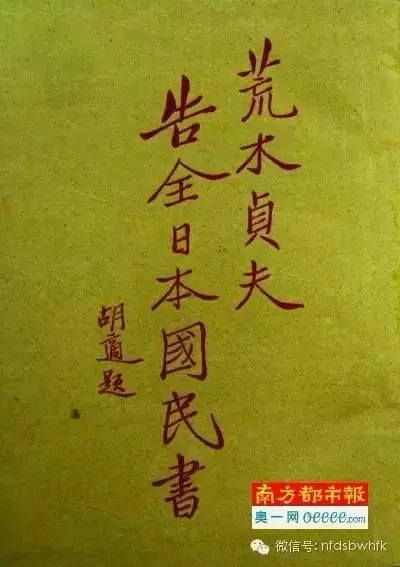 荒木貞夫
告全日本國民書
胡適題
南方都市報
奥一网 oeeee.com
微信号: nfdsbwhfk